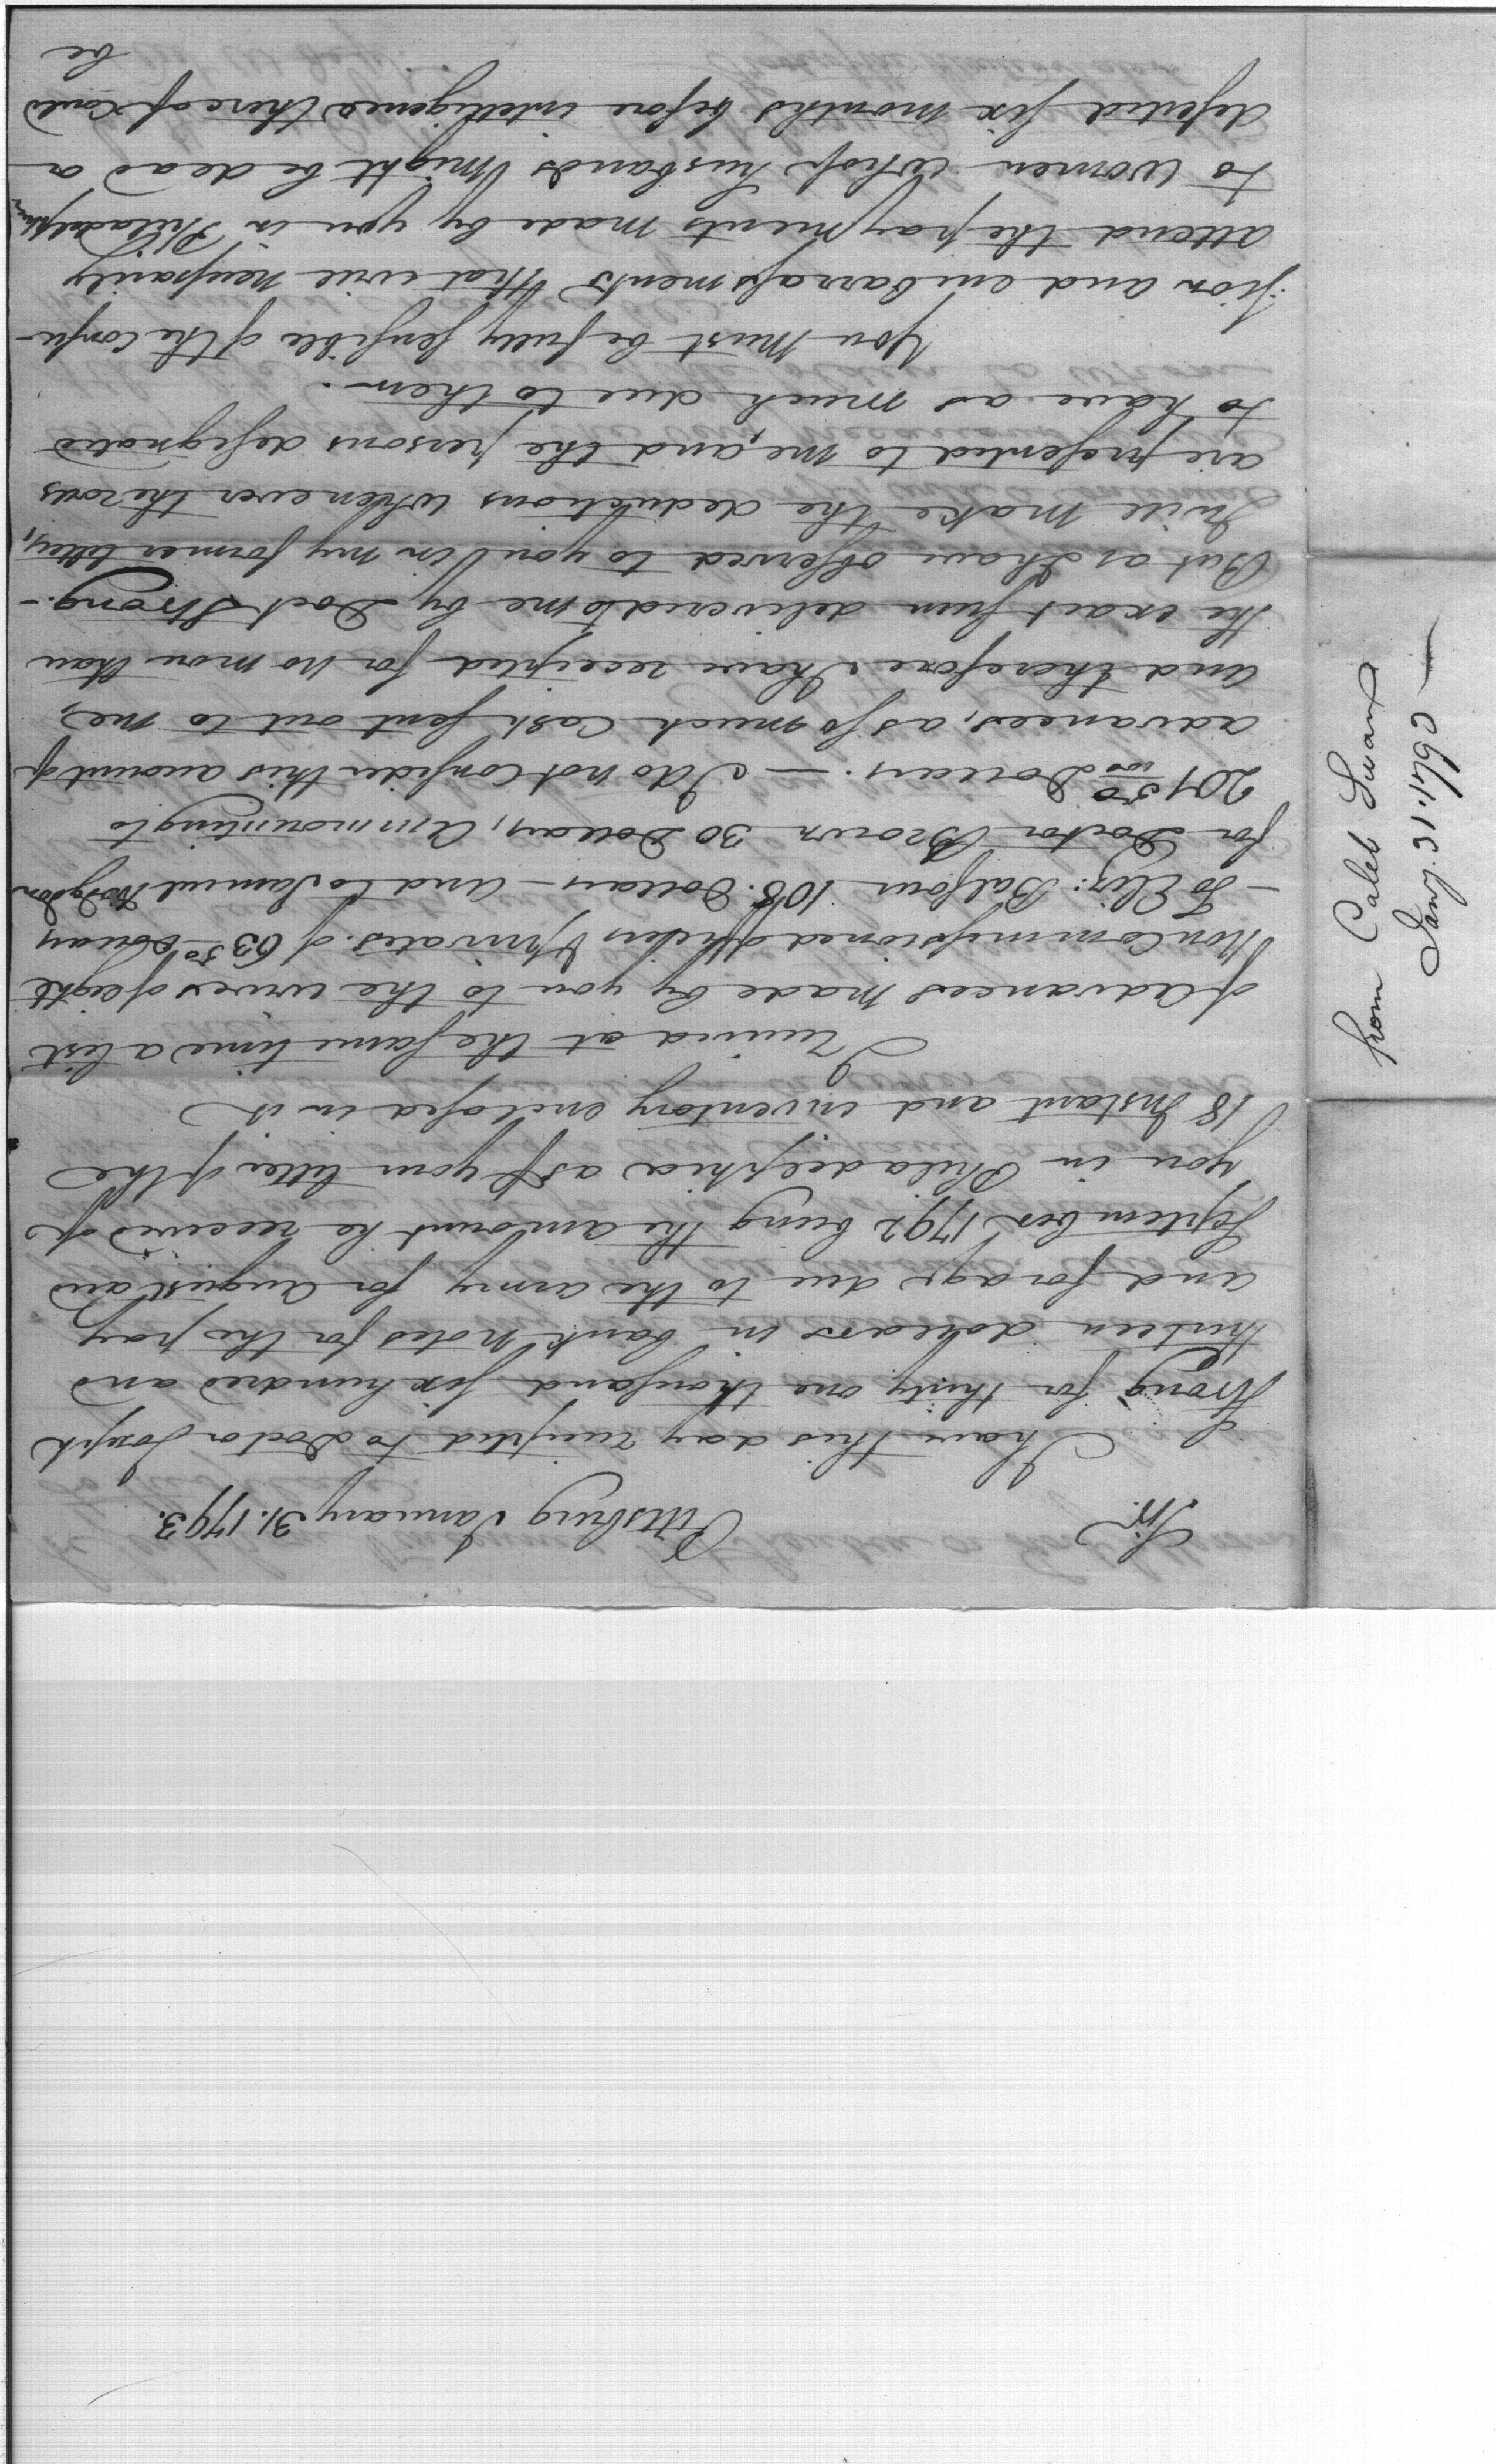 Sir.
Pittsburg January 31. 1793.
I have this day receipted to Doctor Joseph
Strong for thirty one thousand six hundred and
thirteen dollars in bank notes for the pay
and forage due to the army for August and
September 1792 being the amount he received of
you in Philadelphia as ⅌ your letter of the
18 Instant and inventory enclosed in it
I received at the same time a list
of advances made by you to the wives of eight
Non Commissioned officers & privates of 63 50 Dollars
- To Eliz: Balfour 108. Dollars - and to Samuel Hodgdon
for Doctor Brown 30 Dollars, Ammounting to
201 50/100 Dollars. - I do not consider this amount of
advances, as so much Cash sent out to me,
and therefore I have receipted for no more than
the exact sum delivered to me by Doct Strong. -
But as I have observed to you in my former letter,
I will make the deductions whenever the rolls
are presented to me, and the persons designated
to have as much due to them. -
You must be fully sensible of the confu-
:sion and embarrassments that will necessarily
attend the payments made by you in Philadelphia
to women whose husbands might be dead or
deserted six months before intelligence thereof could
be
from Caleb Swan
Jany. 31st. 1793